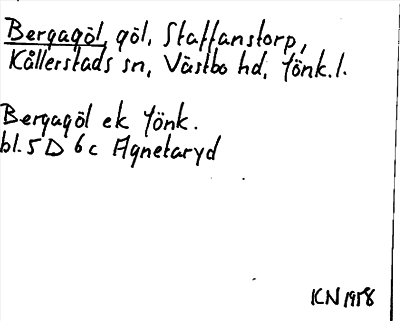 Bergagöl, göl, Staffanstorp,
Kållerstads sn, Västbo hd, Jönk. l.
Bergagöl ek Jönk.
bl. 5 D 6 c Agnetaryd
KN 1958